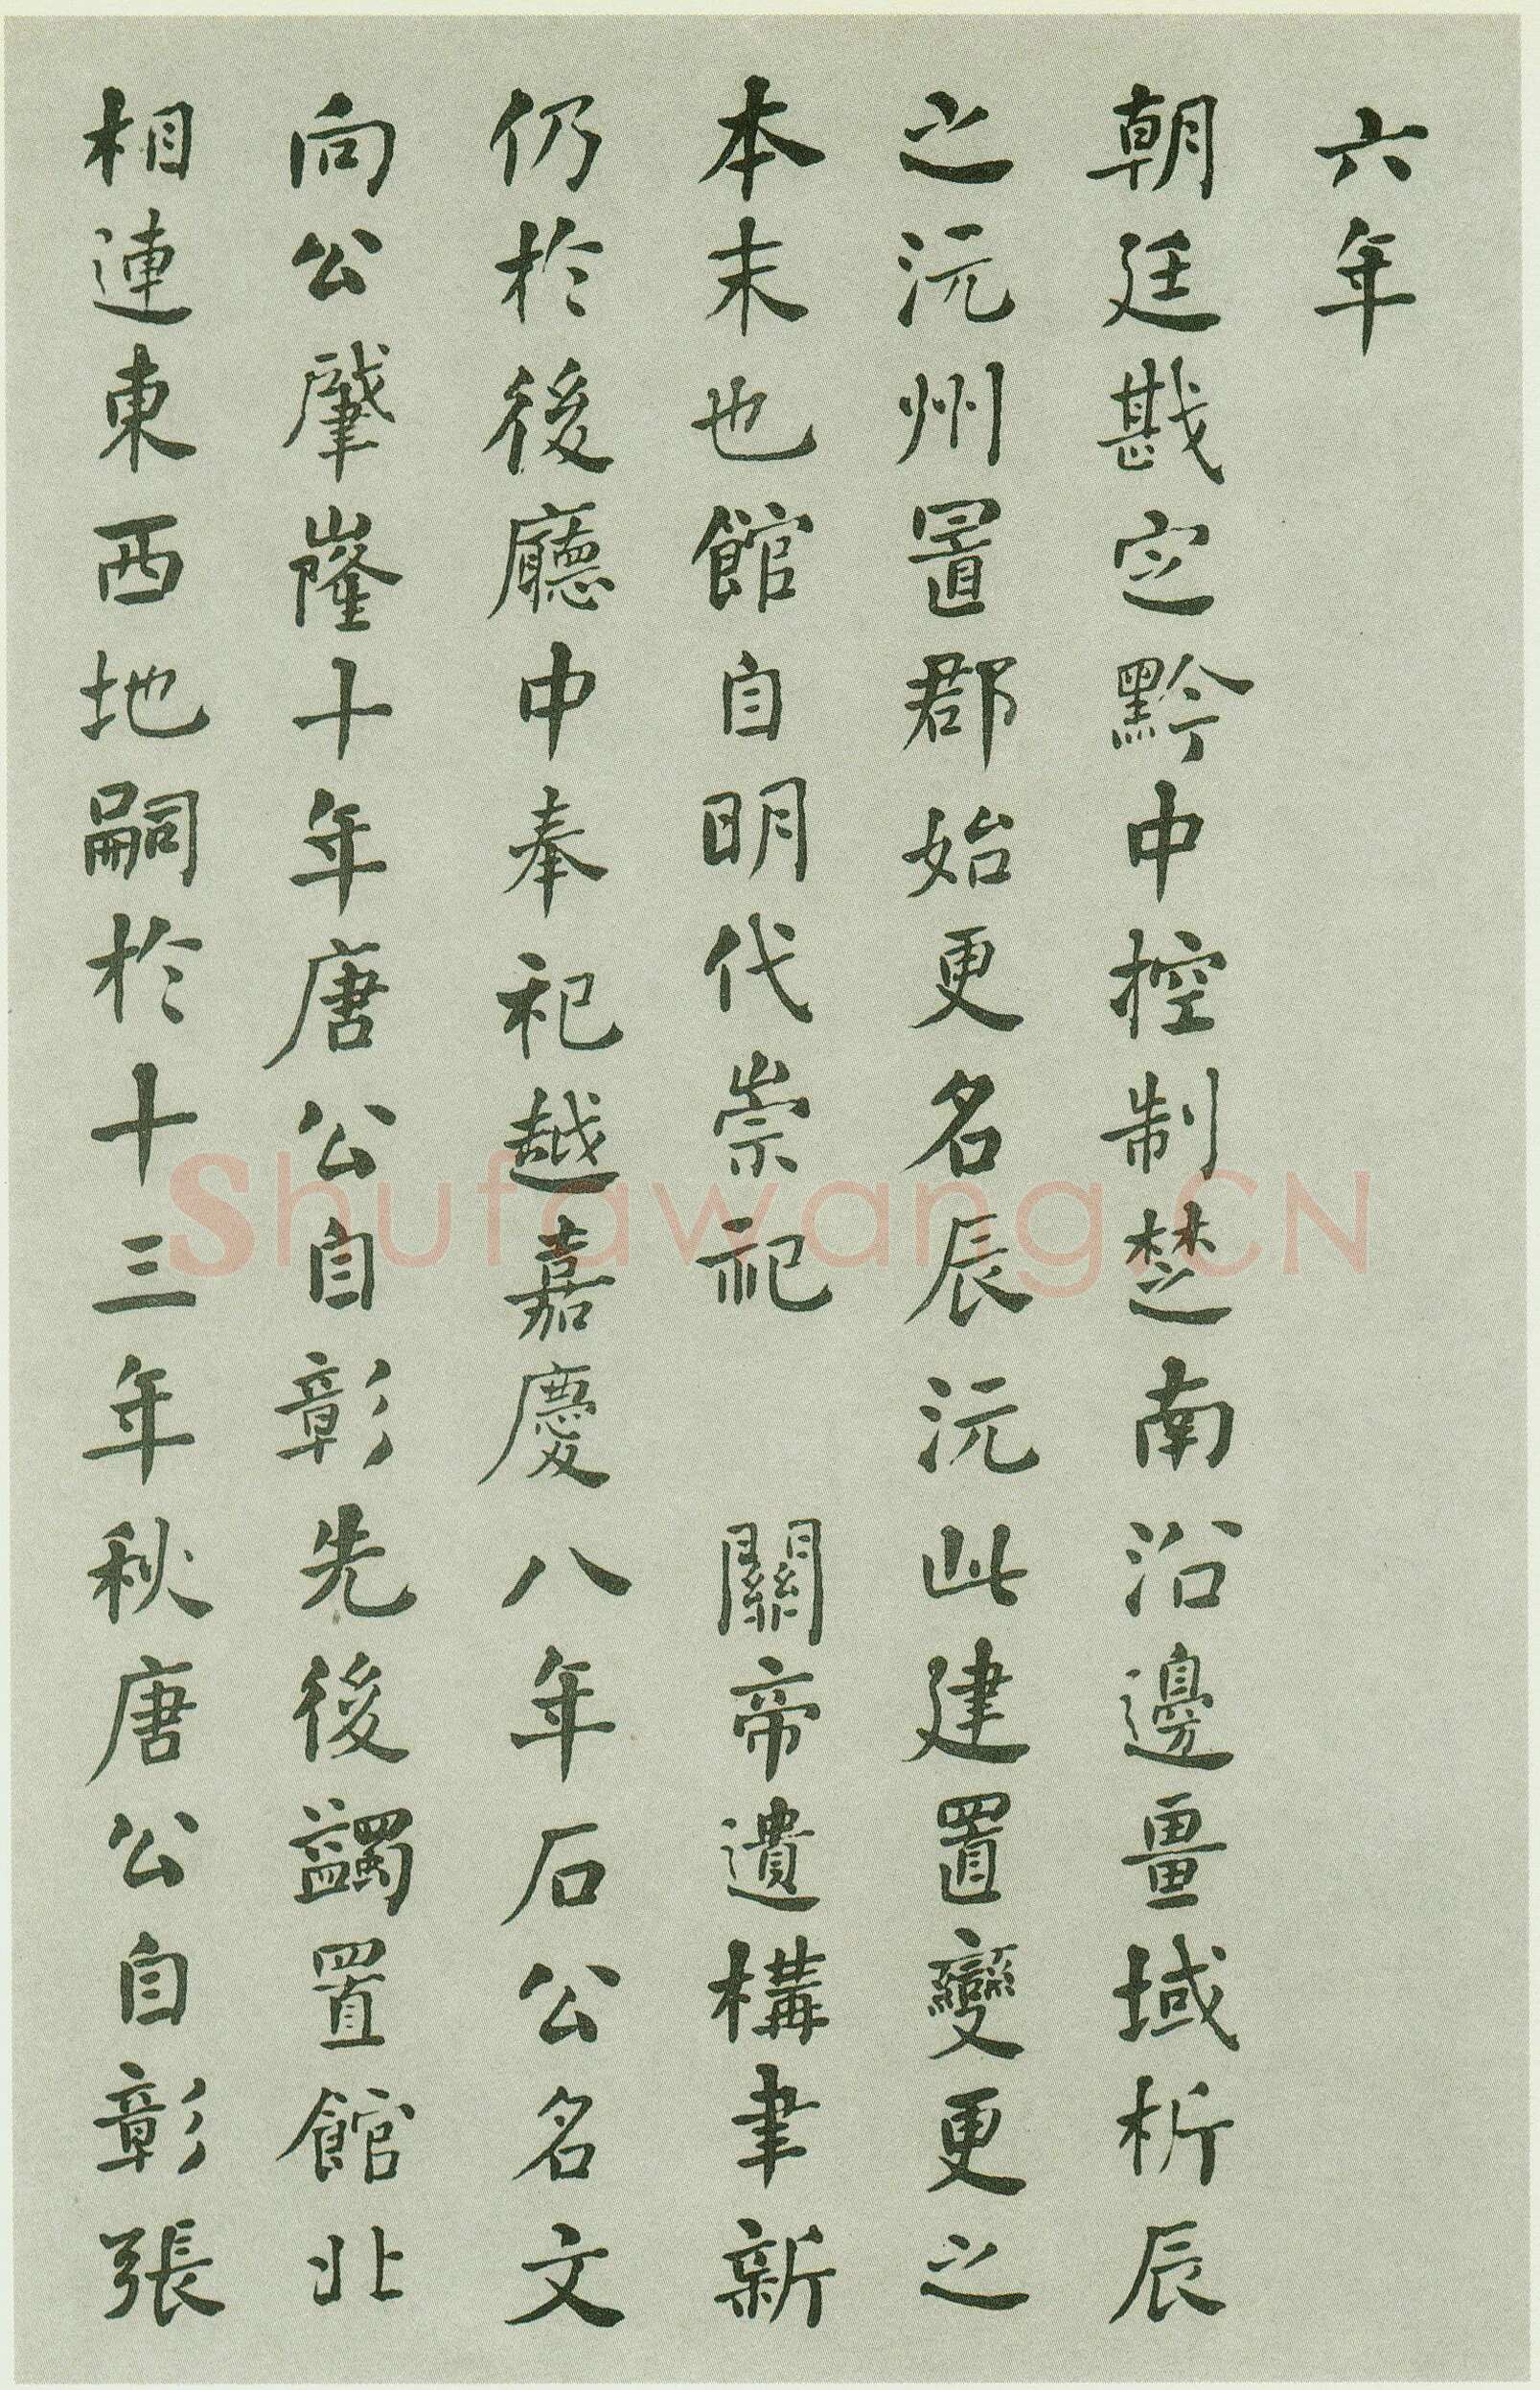 六年
朝廷戡定黔中控制楚南沿邊畺域析辰
之沅州置郡始更名辰沅此建置變更之
本末也館自明代崇祀　關帝遺構聿新
仍於後廳中奉祀越嘉慶八年石公名文
向公肈嶐十年唐公自彰先後蠲置館北
相連東西地嗣於十三年秋唐公自彰張
Shufawang.CN